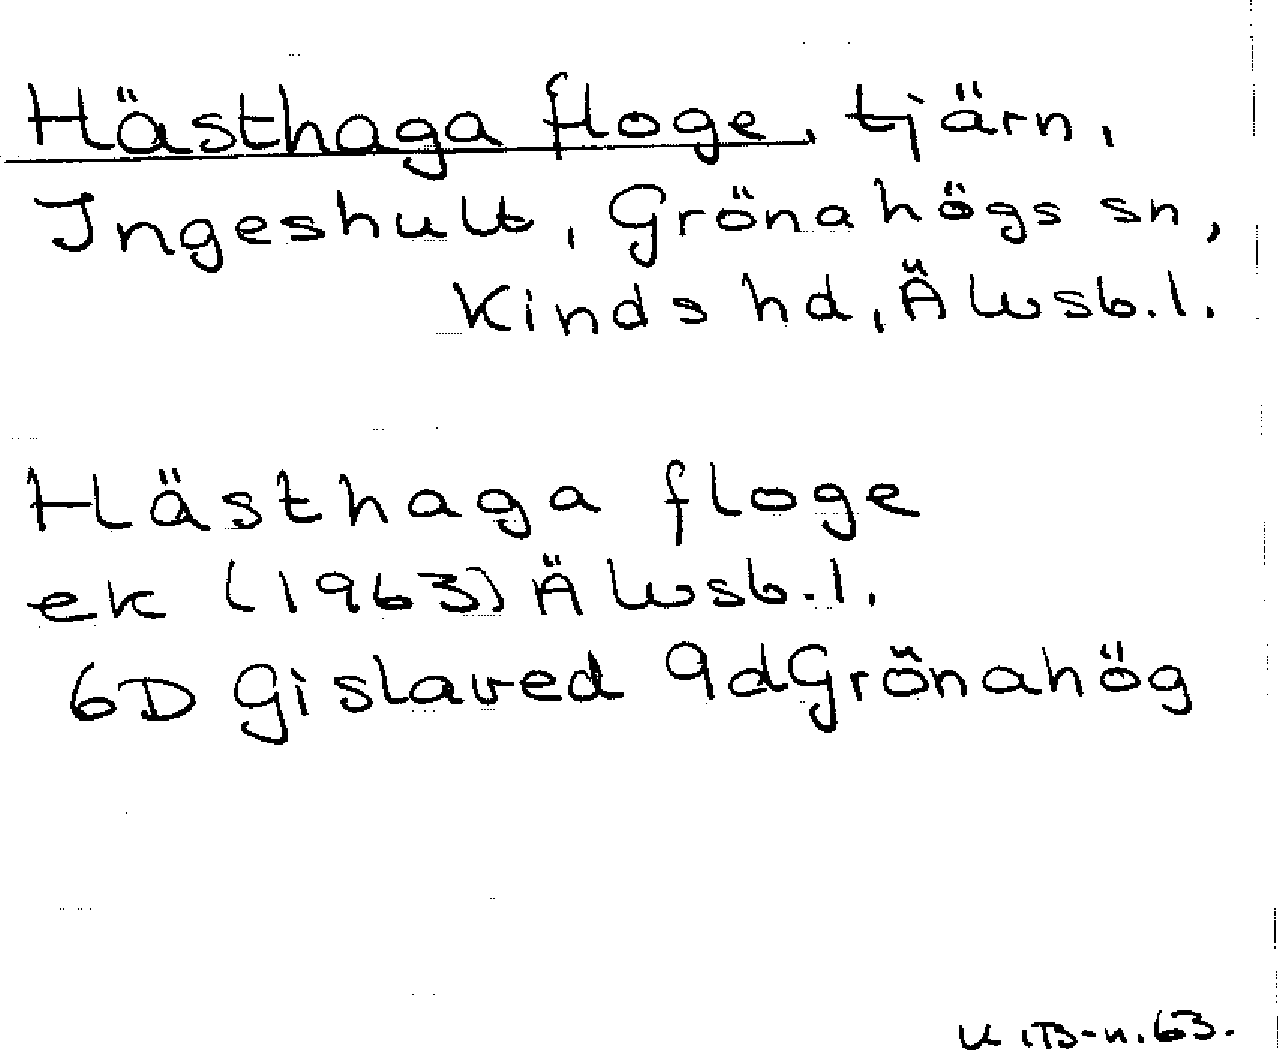 Hästhaga floge, tjärn,
Ingeshult, Grönahögs sn,
Kinds hd, Älvsb.l.
Hästhaga floge
ek (1963) Älvsb.l.
6D Gislaved 9d Grönahög